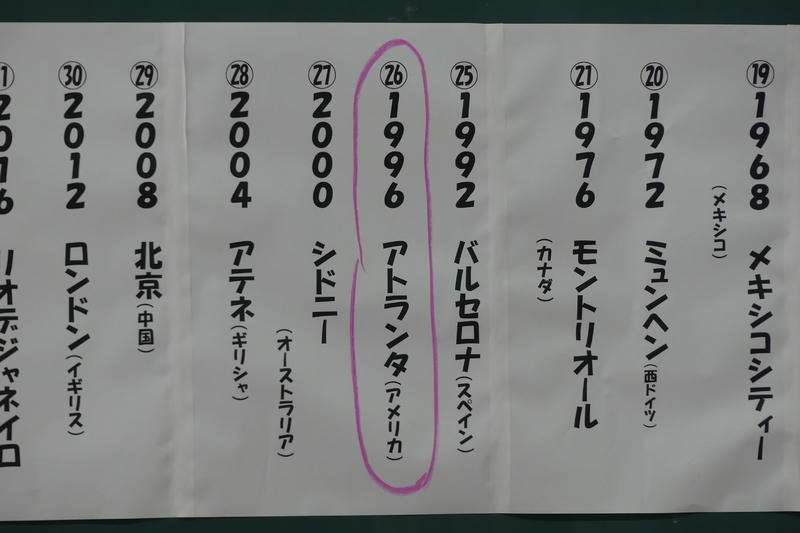 ⑲1968 メキシコシティー
（メキシコ）
⑳1972 ミュンヘン（西ドイツ）
㉑1976 モントリオール
（カナダ）
㉕1992 バルセロナ（スペイン）
㉖1996 アトランタ（アメリカ）
㉗2000 シドニー
（オーストラリア）
㉘2004 アテネ（ギリシャ）
㉙2008 北京（中国）
㉚2012 ロンドン（イギリス）
2016 リオデジャネイロ